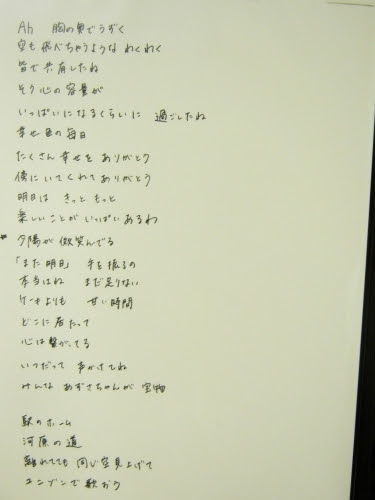 Ah 胸の奥でうずく
空も飛べちゃうような わくわく
皆で共有したね
そう心の容量が
いっぱいになるくらいに 過ごしたね
幸せ色の毎日
たくさん幸せを ありがとう
傍にいてくれて ありがとう
明日は きっと もっと
楽しいことが いっぱいあるわ
* 夕陽が 微笑んでる
「また明日」 手を振るの
本当はね まだ足りない
ケーキよりも 甘い時間
どこに居たって
心は繋がってる
いつだって 声かけてね
みんな あずさちゃんが 宝物
駅のホーム
河原の道
離れてても 同じ空見上げて
ユニゾンで歌おう